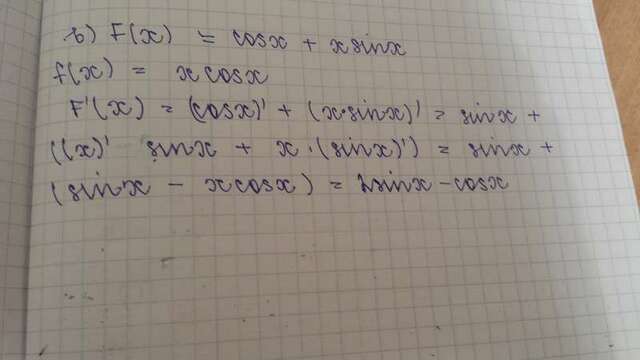 в) F(x) = cosx + x sinx
f(x) = x cosx
F'(x) = (cosx)' + (x·sinx)' = sinx +
((x)' sinx + x·(sinx)') = sinx +
(sinx - x cosx) = 2sinx - cosx